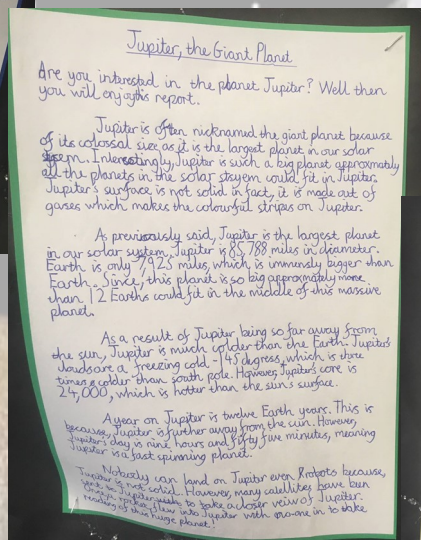 Jupiter, the Giant Planet
Are you interested in the planet Jupiter? Well then
you will enjoy this report.
Jupiter is often nicknamed the giant planet because
of its colossal size as it is the largest planet in our solar
system. Interestingly, Jupiter is such a big planet approxmately
all the planets in the solar stsyem could fit in Jupiter.
Jupiter's surface is not solid in fact, it is made out of
gases which makes the colourful stripes on Jupiter.
As previously said, Jupiter is the largest planet
in our solar system, Jupiter is 85,788 miles in diameter.
Earth is only 7,925 miles, which is immensly bigger than
Earth. Since, this planet is so big approximately more
than 12 Earths could fit in the middle of this massive
planet.
As a result of Jupiter being so far away from
the sun, Jupiter is much colder than the Earth. Jupiter's
clouds are a freezing cold -145 degress, which is three
times colder than south pole. However, Jupiter's core is
24,000, which is hotter than the sun's surface.
A year on Jupiter is twelve Earth years. This is
because, Jupiter is further away from the sun. However,
Jupiter's day is nine hours and fifty five minutes, meaning
Jupiter is a fast spinning planet.
Nobody can land on Jupiter even robots because,
Jupiter is not solid. However, many satellites have been
sent to Jupiter to take a closer veiw of Jupiter.
a rocket flew into Jupiter with no-one in to take
reading of this huge planet!